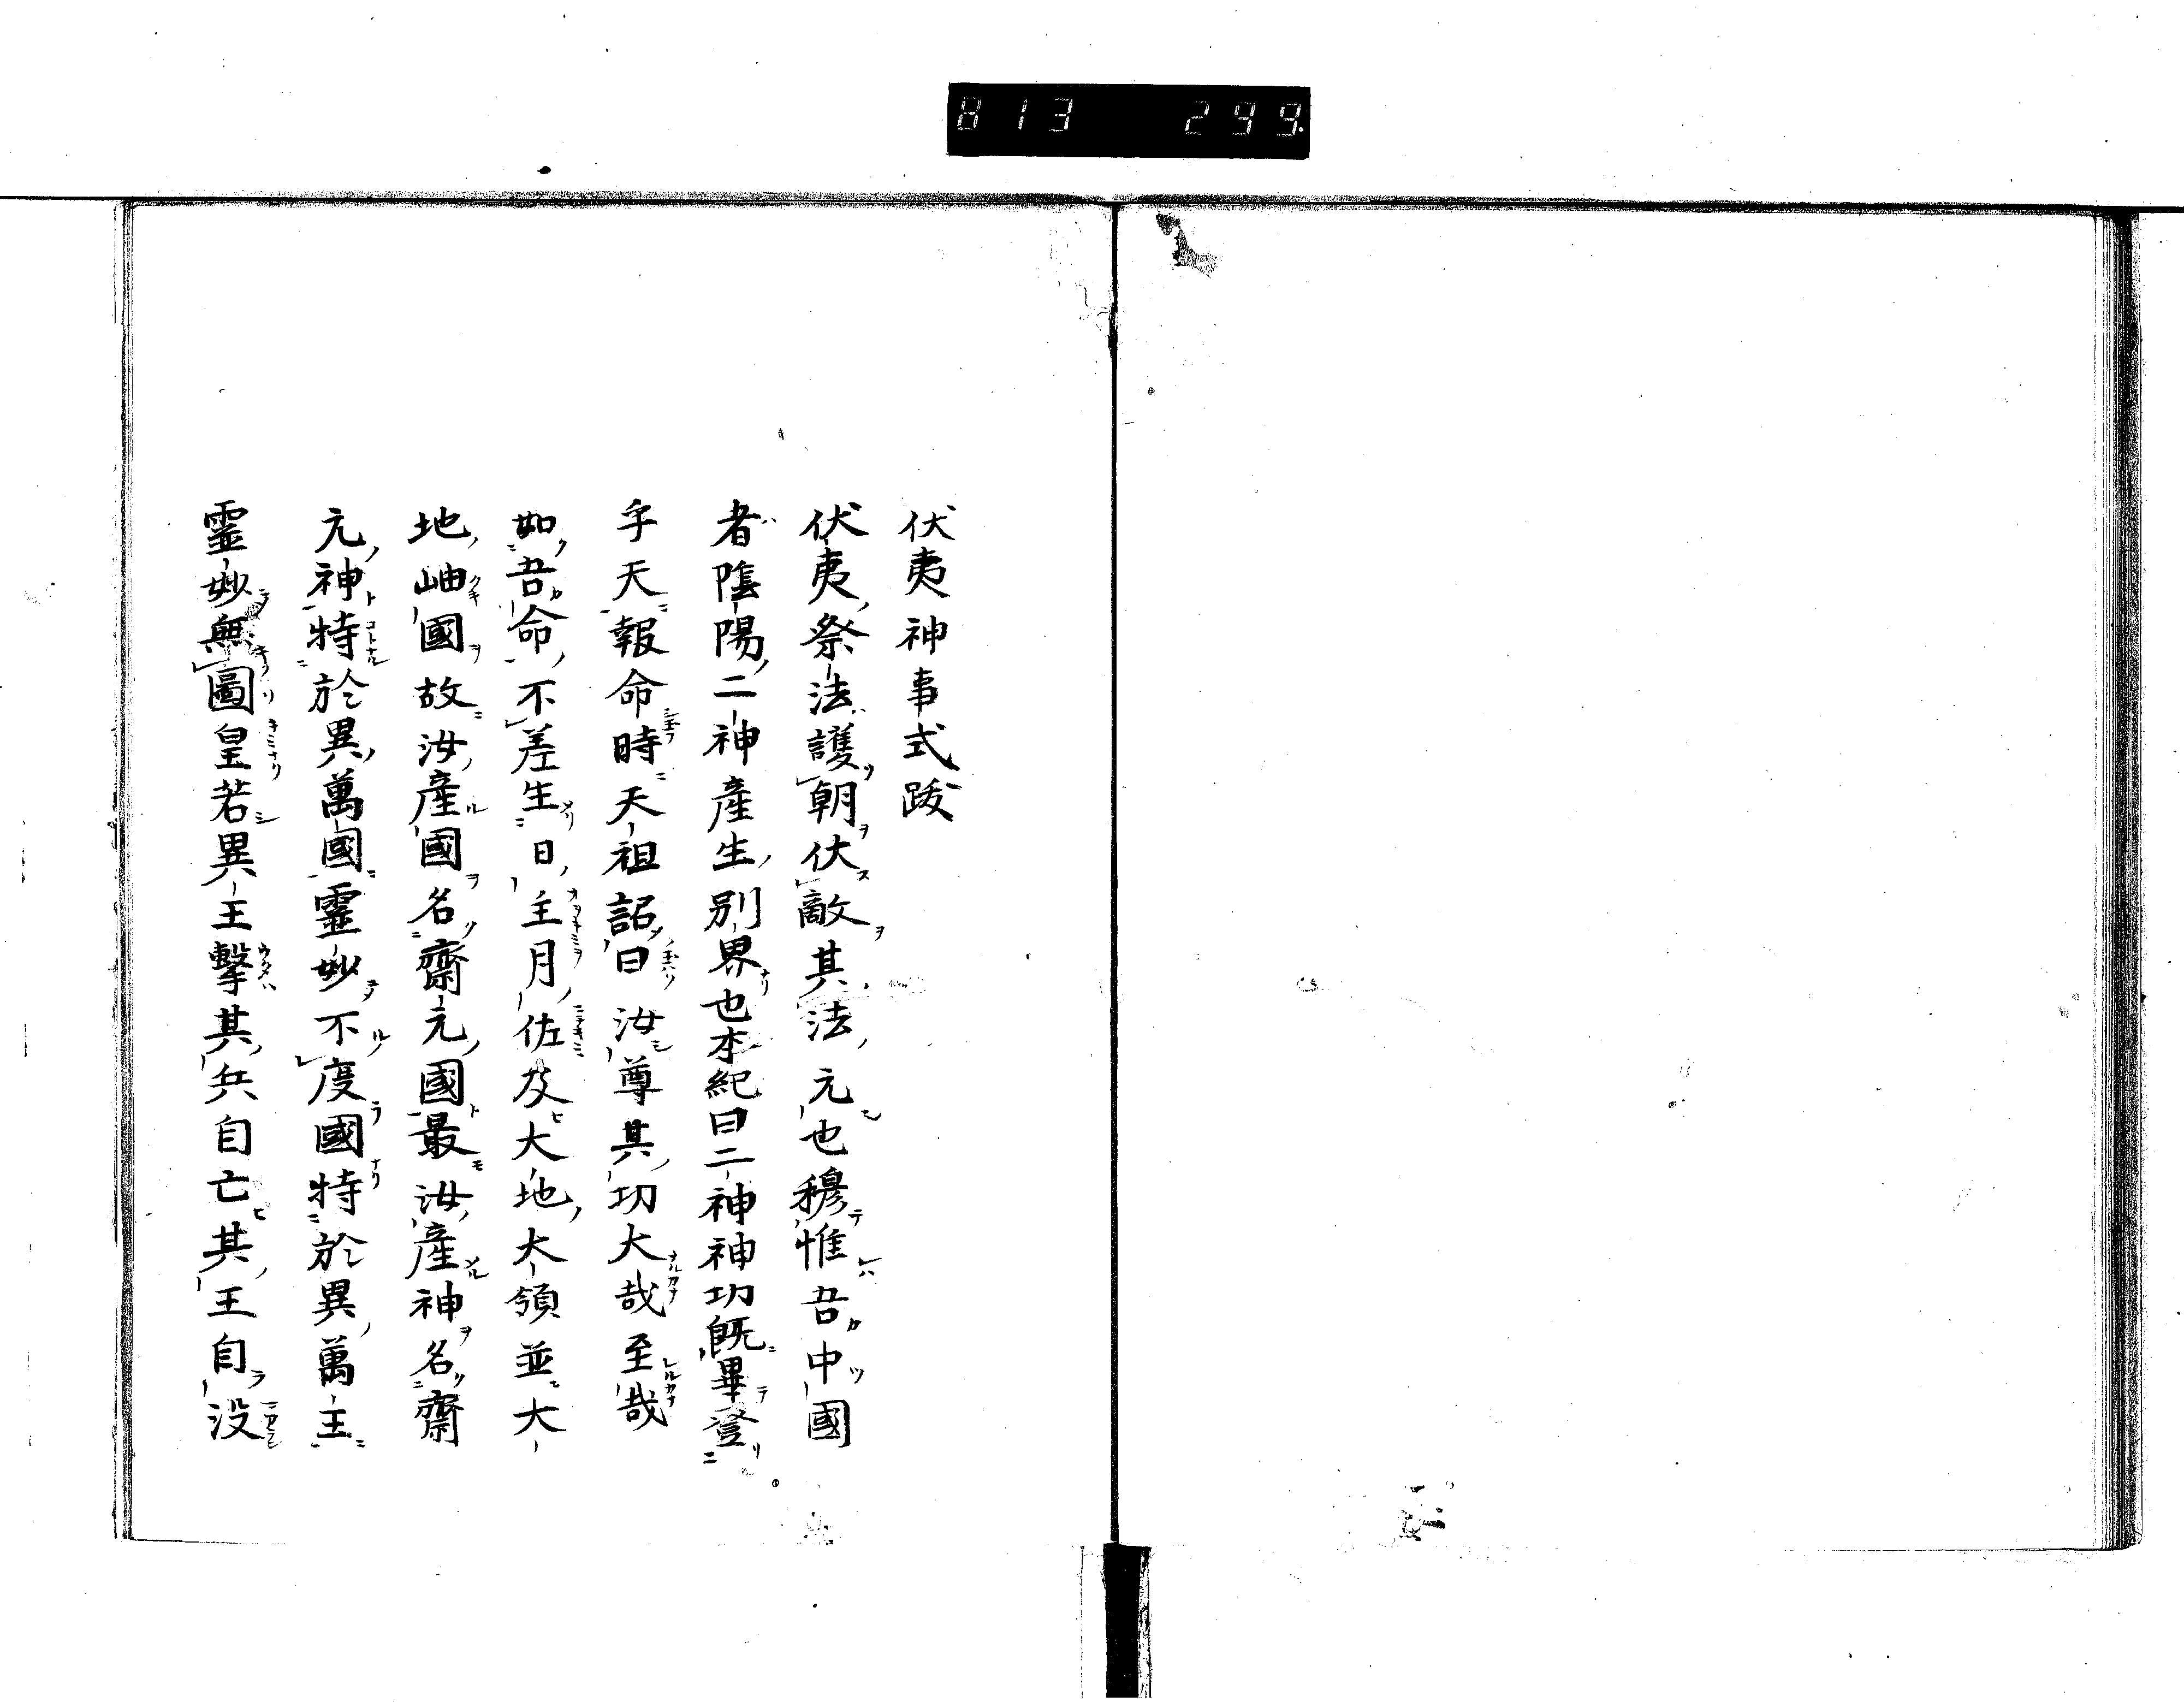 813 299
伏夷神事式跋
伏夷祭法護朝伏敵其法元也穆惟吾中國
者陰陽二神產生別界也本紀曰二神神功既畢登
乎天報命時天祖詔曰汝尊其功大哉至哉
如吾命不差生日主月佐及大地大領並大
地岫國故汝產國名齋元國最汝產神名齋
元神特於異萬國靈妙不度國特於異萬主
靈妙無圖皇若異王擊其兵自亡其王自没